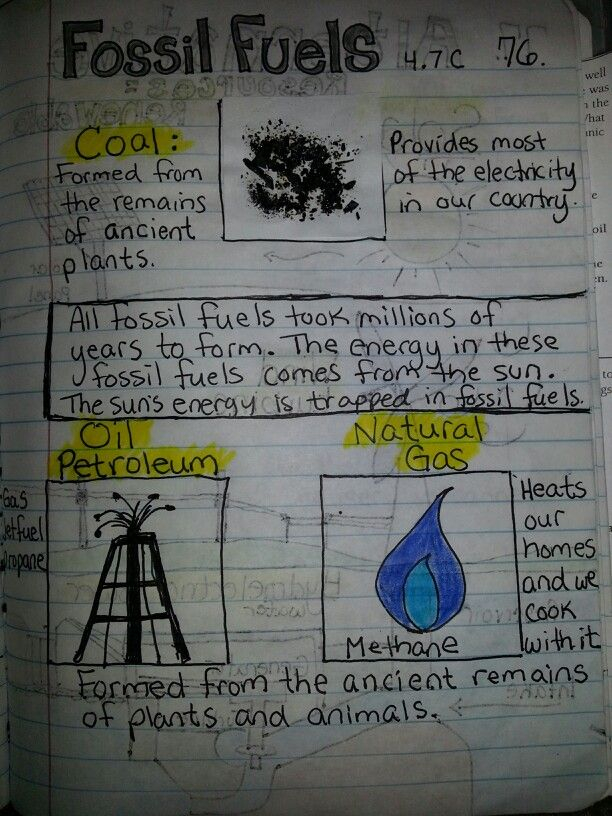 Fossil Fuels 4.7C 76.
Coal:
Formed from
the remains
of ancient
plants.
Provides most
of the electricity
in our country.
All fossil fuels took millions of
years to form. The energy in these
fossil fuels comes from the sun.
The sun's energy is trapped in fossil fuels.
Oil
Petroleum
Gas
Jetfuel
Propane
Natural
Gas
Methane
Heats
our
homes
and we
cook
with it
Formed from the ancient remains
of plants and animals.
well
was
the
oil